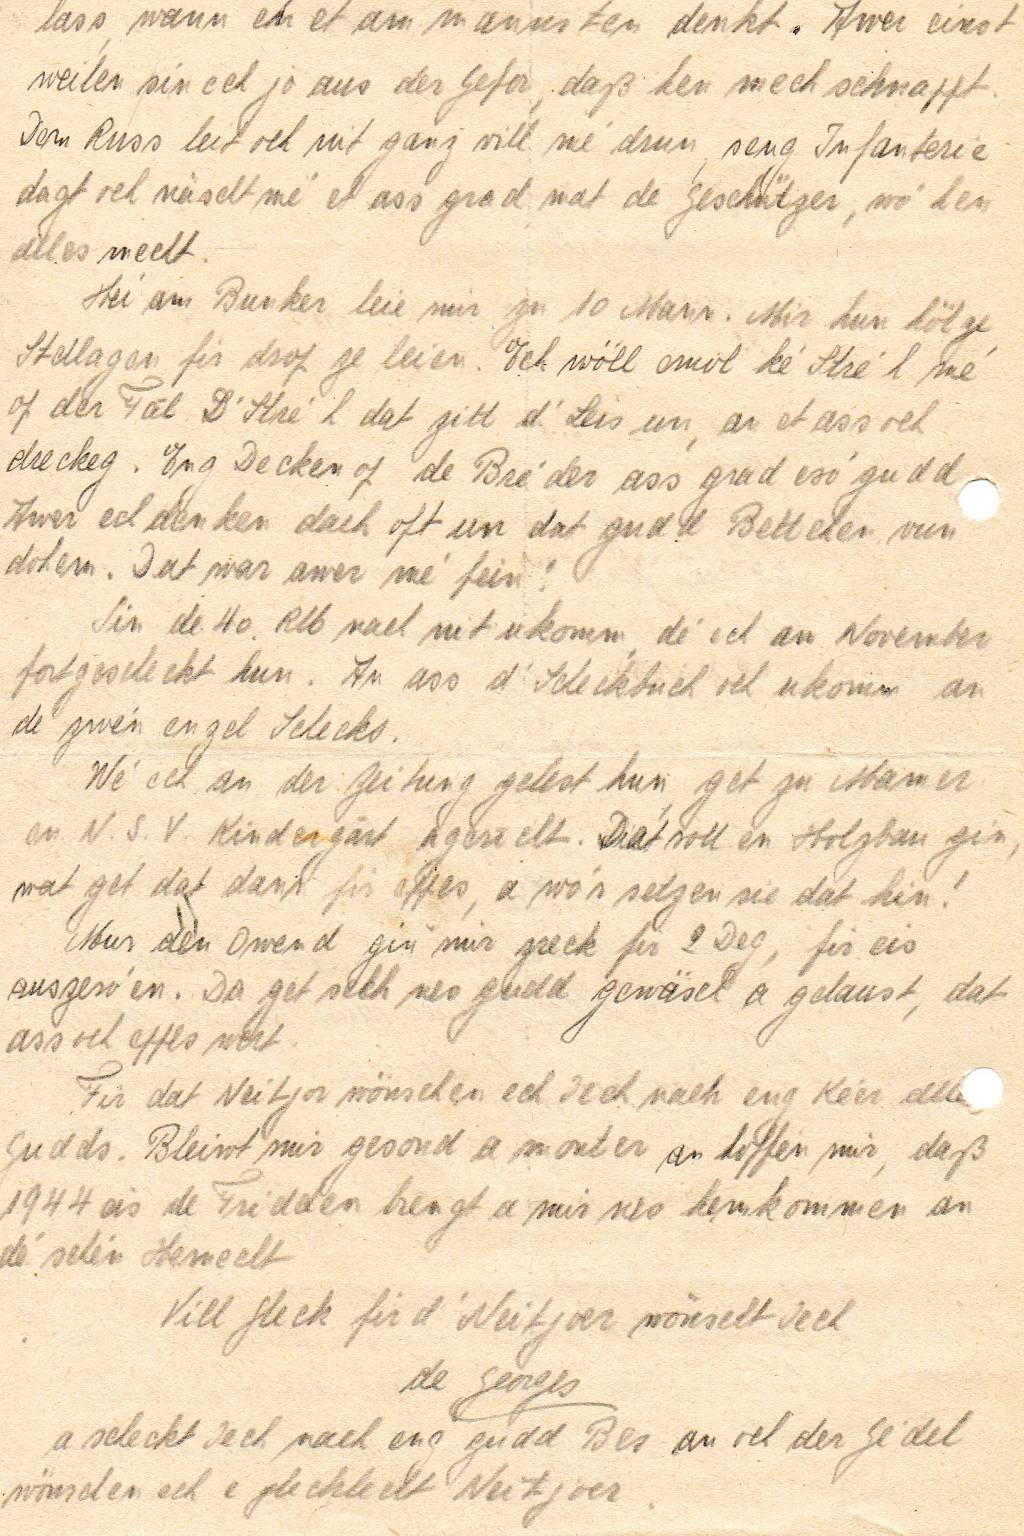 lass, wann en et am mannsten denkt. Awer einst
weilen sin ech jo aus der Gefor, daß hen mech schnappt.
Dem Russ leit och nit ganz vill mé drun, seng Infanterie
dagt och näischt mé et ass grad nat de Geschützer, wó hen
alles mecht.
Hei am Bunker leie mir zu 10 Mann. Mir hun hölze
Stellagen fir drop ze leien. Ech wöll emol ké Stré h mé
of der Fal D'Stré h dat zitt d'Leis un, an et ass och
dreckeg. Eng Decken of de Bréder ass grad esó gudd
Awer ech denken dach oft un dat gudd Bettchen vun
dohem. Dat war awer mé fein!
Sin de 40. RM nach nit ukomm, dé ech am November
fortgescheckt hun. An ass d'Scheckbuch och ukomm an
dé zwén enzel Schecks.
Wé ech an der Zeitung gelest hun, get zu Mamer
en N.S.V. Kindergart ageriecht. Dat soll en Holzbau gin,
wat get dat dann fir effes, a wó'r setzen sie dat hin!
Mur den Owend gin mir zreck fir 2 Deg, fir eis
auszeró'en. Da get sech nes gudd gewäsch a gelaust, dat
ass och effes wert.
Fir dat Neitjor wönschen ech Iech nach eng Kéer alle
Gudds. Bleiwt mir gesond a monter an hoffen mir, daß
1944 ais de Fridden brengt a mir nes hemkommen an
dé schén Hemecht
Vill Gleck fir d'Neitjoer wönscht Iech
de Georges
a scheckt Iech nach eng gudd Bes an och der Gédel
wönschen ech e glecklecht Neitjoer.